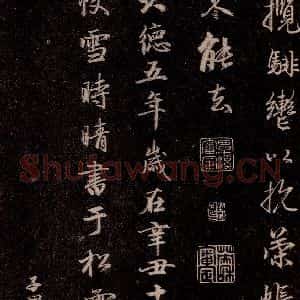 攬騑轡以抗策悵
冬能去
大德五年歲在辛丑十
快雪時晴書于松雪
子昂
Shufawang.CN